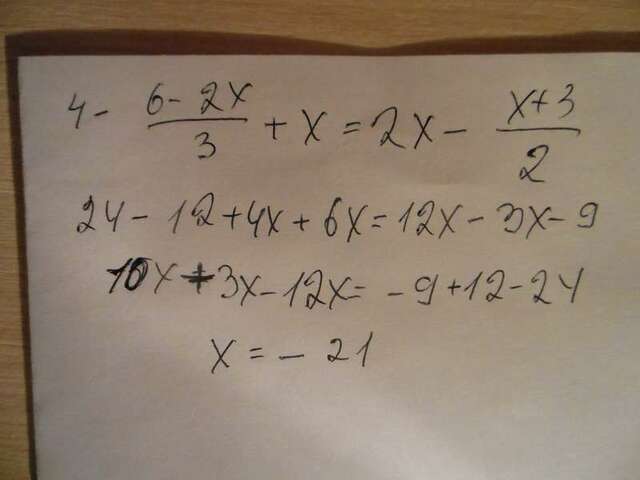 4 - (6 - 2x)/3 + x = 2x - (x+3)/2
24 - 12 + 4x + 6x = 12x - 3x - 9
10x + 3x - 12x = - 9 + 12 - 24
x = - 21